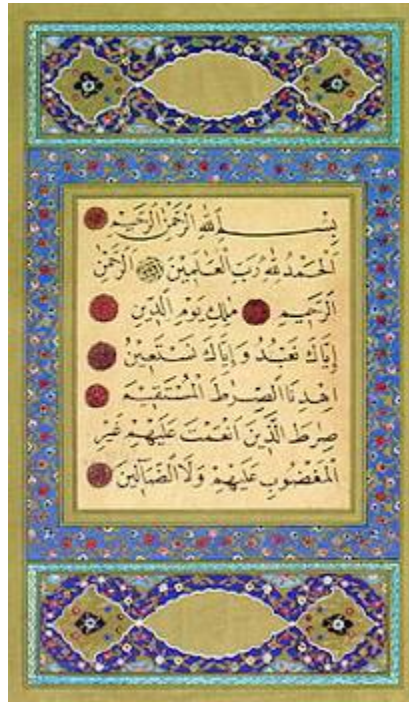 بِسْمِ اللهِ الرَّحْمٰنِ الرَّحِيمِ
اَلْحَمْدُ لِلهِ رَبِّ الْعَالَمِينَ اَلرَّحْمٰنِ
الرَّحِيمِ مٰلِكِ يَوْمِ الدِّينِ
إِيَّاكَ نَعْبُدُ وَإِيَّاكَ نَسْتَعِينُ
اِهْدِنَا الصِّرٰطَ الْمُسْتَقِيمَ
صِرٰطَ الَّذِينَ اَنْعَمْتَ عَلَيْهِمْ غَيْرِ
الْمَغْضُوبِ عَلَيْهِمْ وَلَا الضَّآلِّينَ